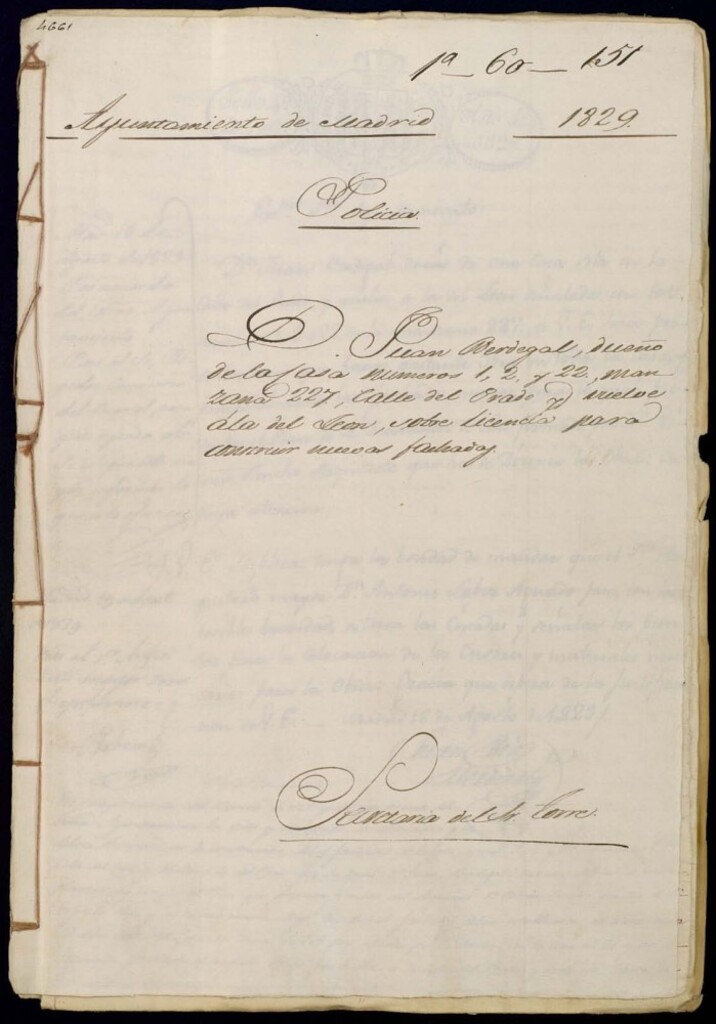 4661
1ª - 60 - 151
Ayuntamiento de Madrid 1829.
Policia.
D. Juan Berdegal, dueño
de la Casa numeros 1, 2, y 22, man
zana 227, Calle del Prado y vuelve
á la del Leon, sobre licencia para
construir nuevas fachadas.
Secretaria del Sr. Torre.